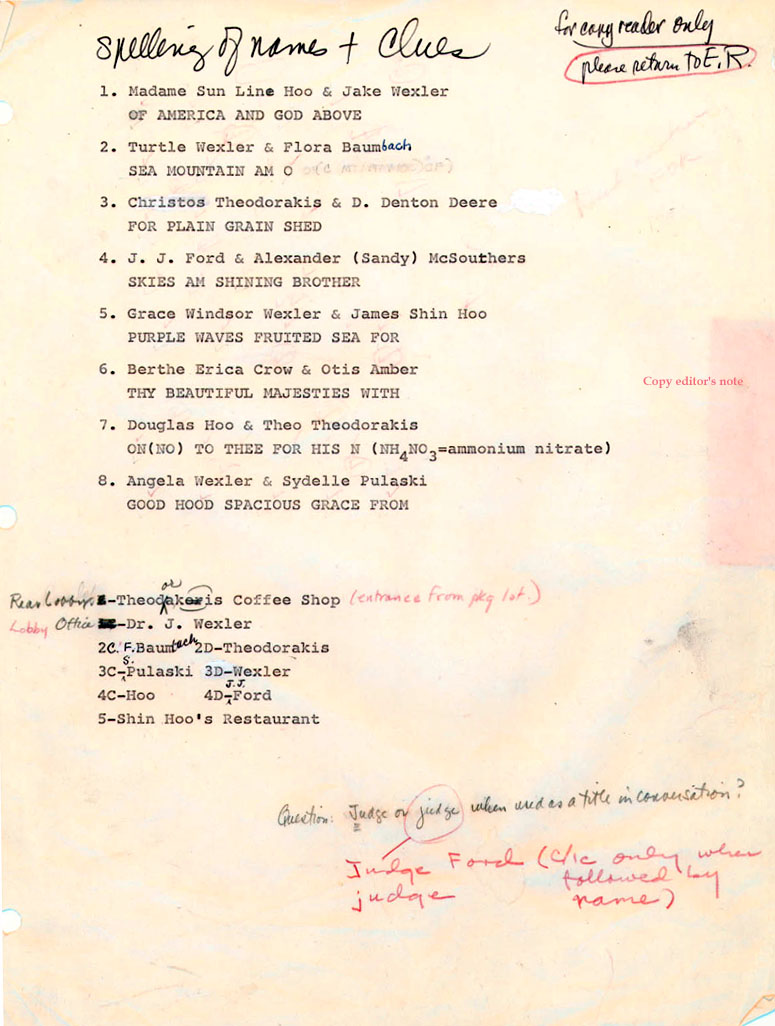 Spelling of names + Clues
for copy reader only
please return to E.R.
1. Madame Sun Line Hoo & Jake Wexler
OF AMERICA AND GOD ABOVE
2. Turtle Wexler & Flora Baumbach
SEA MOUNTAIN AM O
3. Christos Theodorakis & D. Denton Deere
FOR PLAIN GRAIN SHED
4. J. J. Ford & Alexander (Sandy) McSouthers
SKIES AM SHINING BROTHER
5. Grace Windsor Wexler & James Shin Hoo
PURPLE WAVES FRUITED SEA FOR
6. Berthe Erica Crow & Otis Amber
THY BEAUTIFUL MAJESTIES WITH
Copy editor's note
7. Douglas Hoo & Theo Theodorakis
ON(NO) TO THEE FOR HIS N (NH4NO3=ammonium nitrate)
8. Angela Wexler & Sydelle Pulaski
GOOD HOOD SPACIOUS GRACE FROM
Rear Lobby-Theodorakis Coffee Shop (entrance from pkg lot.)
Lobby Office-Dr. J. Wexler
2C. F. Baumbach 2D-Theodorakis
3C-S. Pulaski 3D-Wexler
4C-Hoo 4D-J.J. Ford
5-Shin Hoo's Restaurant
Question: Judge or judge when used as a title in conversation?
Judge Ford (c/c only when
judge followed by
name)